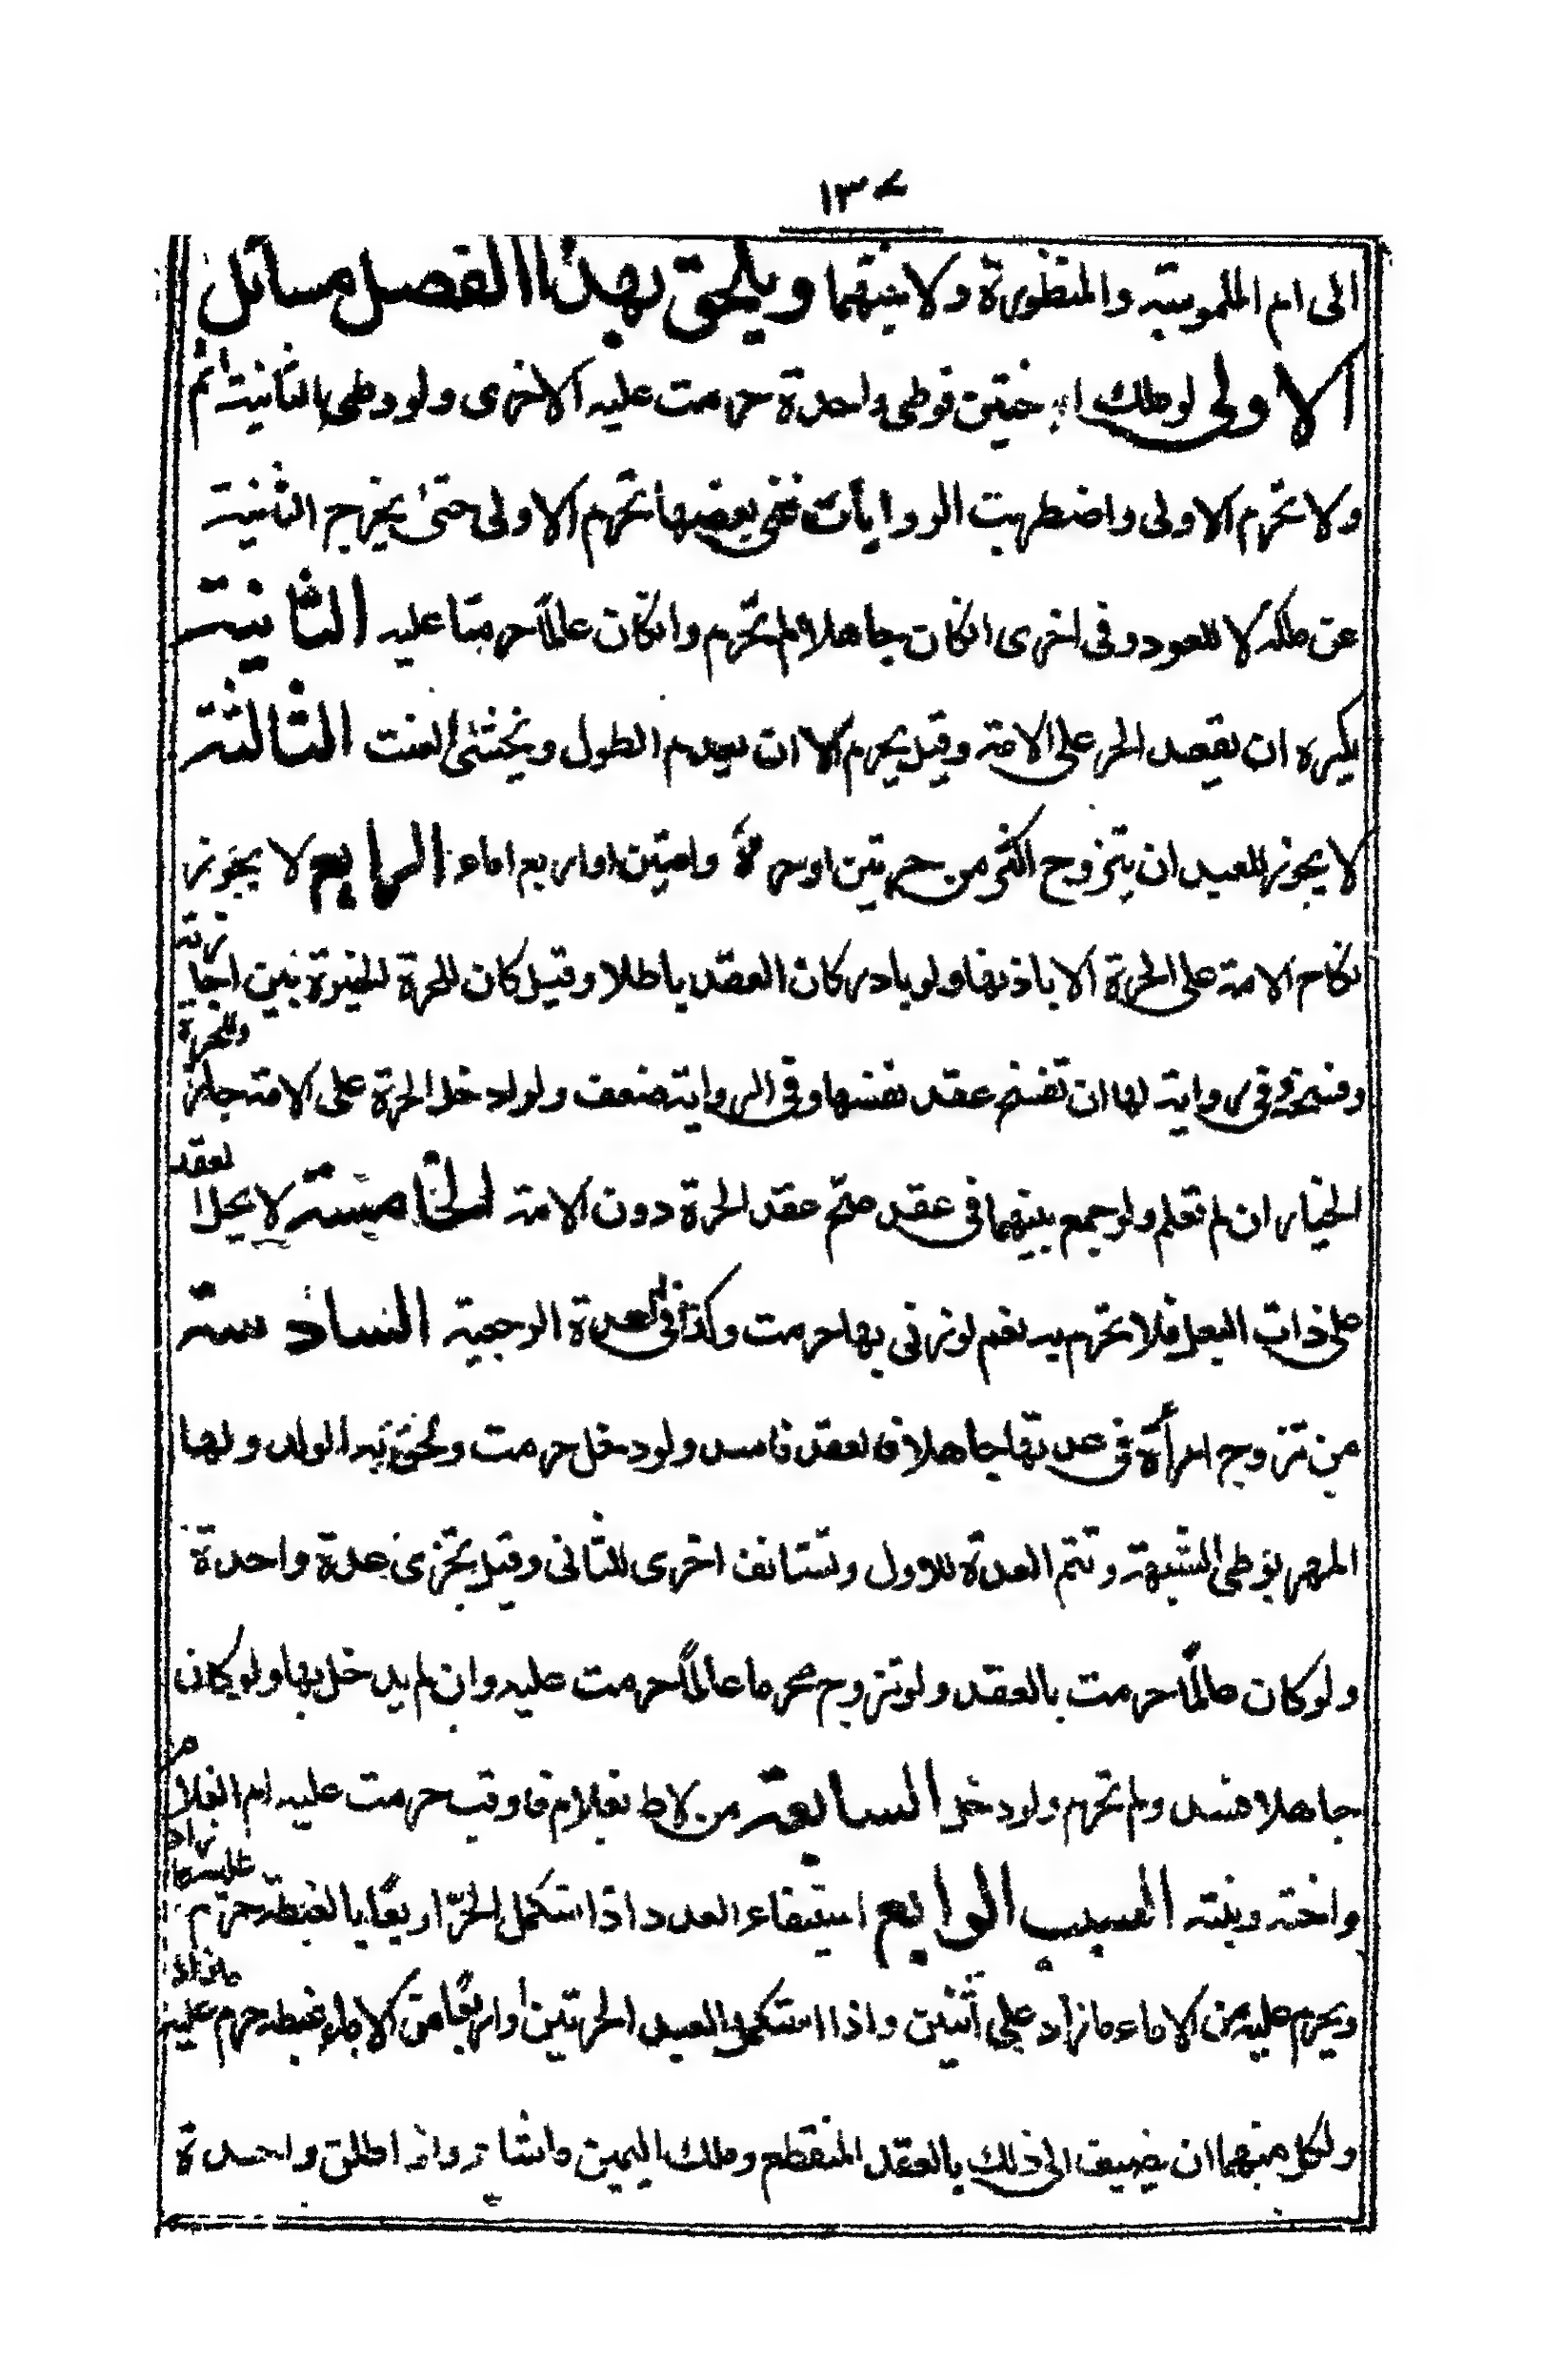 ١٣٧
الى ام الملموسته والمنظورة ولا بنتهما ويلحق بهذا الفصل مسائل
الاولى لو ملك اختين فوطى واحدة حرمت عليه الاخرى ولو وطى الثانية اثم
ولا تحرم الاولى واضطربت الروايات ففى بعضها تحرم الاولى حتى يخرج الثنية
عن ملكه لا للعود وفى اخرى انكان جاهلا لم تحرم وانكان عالماً حرمتا عليه الثانية
يكره ان يعقد الحر على الامة وقيل يحرم الا ان يعدم الطول ويخشى العنت الثالثة
لا يجوز للعبد ان يتزوج اكثر من حرتين او حرة وامتين او اربع اماء الرابع لا يجوز
نكاح الامة على الحرة الا باذنها ولو بادر كان العقد باطلا وقيل كان للحرة الخيرة بين اجازته
وفسخه وفى رواية لها ان تفسخ عقد نفسها وفى الرواية ضعف ولو ادخل الحرة على الامة جاز وللحرة
الخيار ان لم تعلم ولو جمع بينهما فى عقد صح عقد الحرة دون الامة الخامسة لا يحل العقد
على ذات البعل فلا تحرم به نعم لو زنى بها حرمت وكذا فى العدة الرجعية السادسة
من تزوج امرأة فى عدتها جاهلا فالعقد فاسد ولو دخل حرمت ولحق به الولد ولها
المهر بوطى الشبهة وتتم العدة للاول وتستانف اخرى للثانى وقيل تجزى عدة واحدة
ولو كان عالماً حرمت بالعقد ولو تزوج محرما عالماً حرمت عليه وان لم يدخل بها ولو كان
جاهلا فسد ولم تحرم ولو دخل السابعة من لاط بغلام فاوقب حرمت عليه ام الغلام
واخته وبنته السبب الرابع استيفاء العدد اذا استكمل الحرّ اربعًا بالغبطة حرّم عليه ما زاد
ويحرم عليه من الاماء ما زاد على اثنين واذا استكمل العبد الحرتين او اربعًا من الاماء غبطة حرم عليه ما زاد
ولكل منهما ان يضيف الى ذلك بالعقد المنقطع وملك اليمين ما شاء واذا طلق واحدة